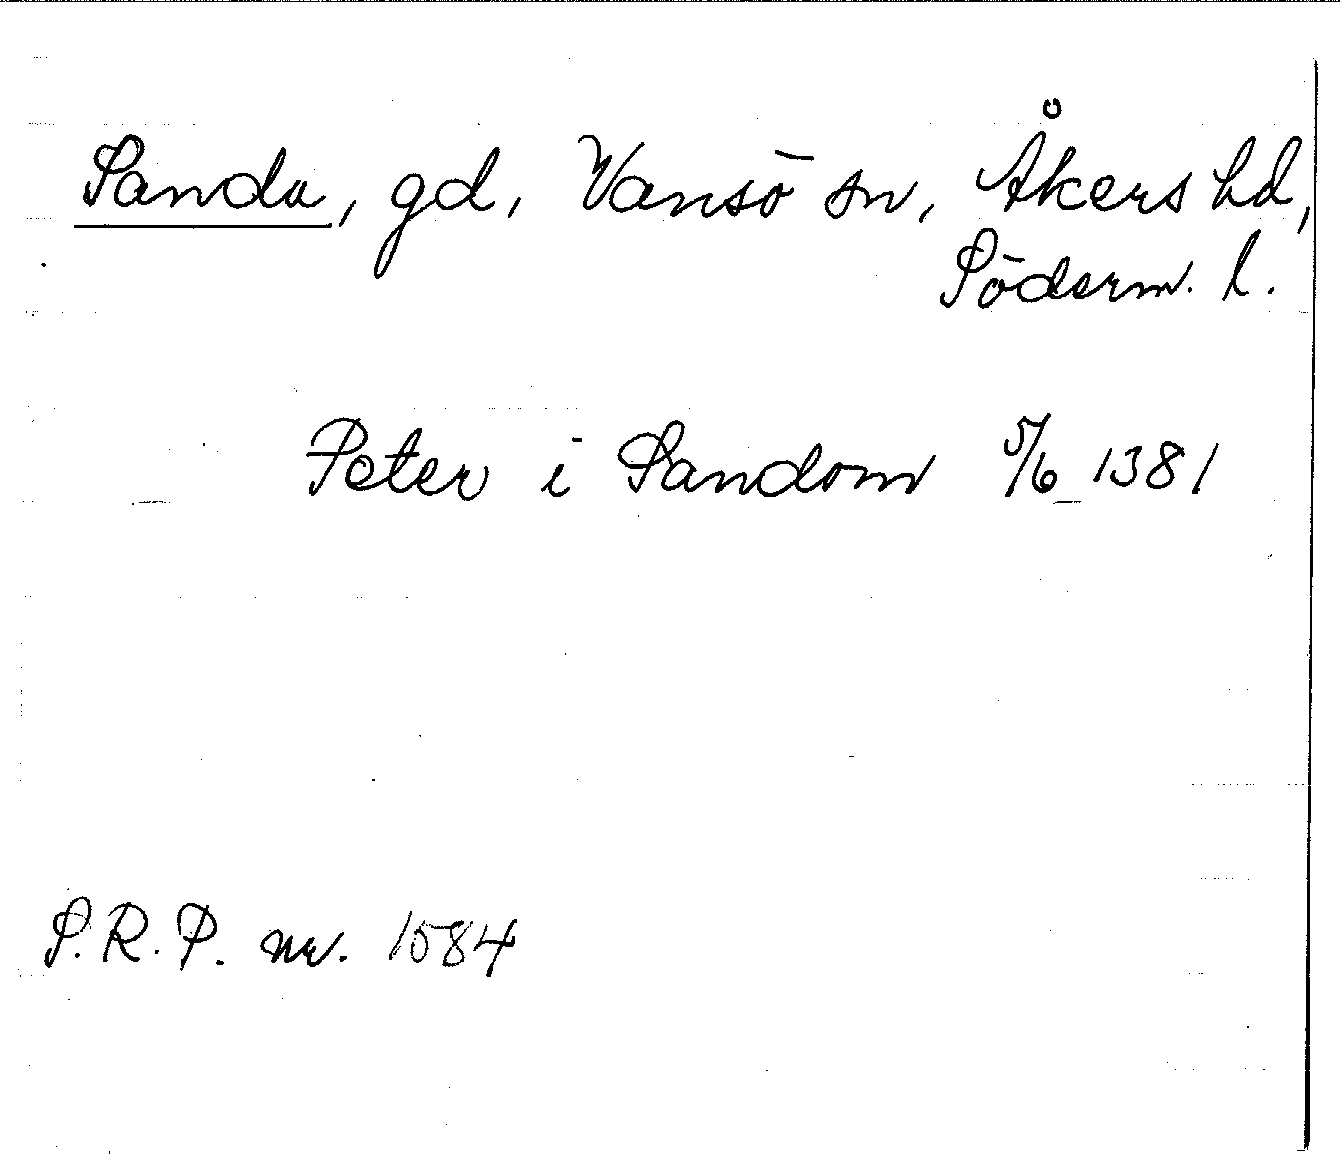 Sanda, gd, Vansö sn, Åkers hd,
Söderm. l.
Peter i Sandom 5/6 1381
S.R.P. nr. 1584